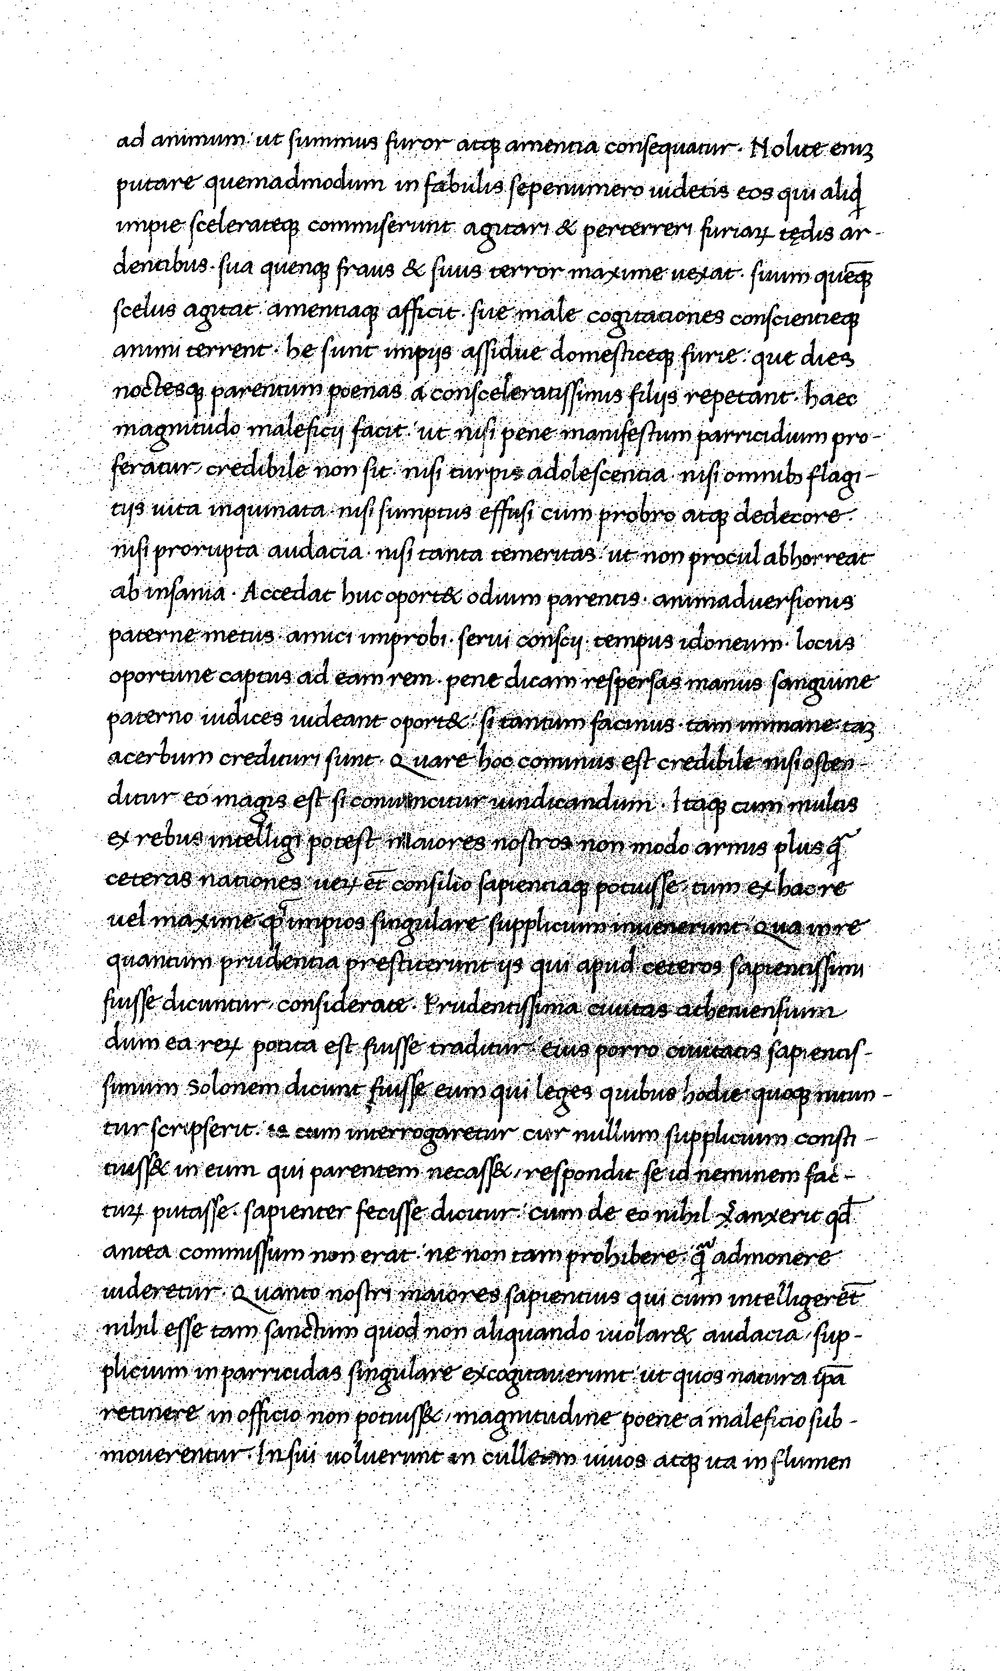 ad animum ut summus furor atq; amentia consequatur. Nolite eniꝫ
putare quemadmodum in fabulis sepenumero uidetis eos qui aliqͥd
impie scelerateq; commiserunt agitari & perterreri furiaꝝ tędis ar-
dentibus. sua quenq; fraus & suus terror maxime uexat. suum quēq;
scelus agitat. amentiaq; afficit. sue male cogitationes conscientieq;
animi terrent. he sunt impijs assidue domesticeq; furie. que dies
noctesq; parentum poenas a consceleratissimis filijs repetant. haec
magnitudo maleficij facit. ut nisi pene manifestum parricidium pro-
feratur, credibile non sit. nisi turpis adolescentia. nisi omnibꝫ flagi-
tijs uita inquinata. nisi sumptus effusi cum probro atq; dedecore.
nisi prorupta audacia. nisi tanta temeritas. ut non procul abhorreat
ab insania. Accedat huc oport& odium parentis. animaduersionis
paterne metus. amici improbi. serui conscij. tempus idoneum. locus
oportune captus ad eam rem. pene dicam respersas manus sanguine
paterno iudices uideant oport&. si tantum facinus. tam immane. taꝫ
acerbum credituri sunt. Quare hoc cominus est credibile nisi osten-
ditur eo magis est si conuincitur uindicandum. Itaq; cum multis
ex rebus intelligi potest maiores nostros non modo armis plus qᷓ
ceteras nationes ueꝝ et̄ consilio sapientiaq; potuisse. tum ex hac re
uel maxime qᷓ impios singulare supplicium inuenerunt. Qua in re
quantum prudentia prestiterunt ijs qui apud ceteros sapientissimi
fuisse dicuntur, considerate. Prudentissima ciuitas atheniensium
dum ea reꝝ potita est fuisse traditur. eius porro ciuitatis sapientis-
simum Solonem dicunt fuisse eum qui leges quibus hodie quoq; utun-
tur scripserit. is cum interrogaretur cur nullum supplicium consti-
tuiss& in eum qui parentem necass&, respondit se id neminem fac-
tuꝝ putasse. sapienter fecisse dicitur. cum de eo nihil sanxerit qđ
antea commissum non erat. ne non tam prohibere. qᷓ admonere
uideretur. Quanto nostri maiores sapientius qui cum intelligerēt
nihil esse tam sanctum quod non aliquando uiolar& audacia, sup-
plicium in parricidas singulare excogitauerunt. ut quos natura ip̄a
retinere in officio non potuiss&, magnitudine poene a maleficio sub-
mouerentur. Insui uoluerunt in culleum uiuos atq; ita in flumen